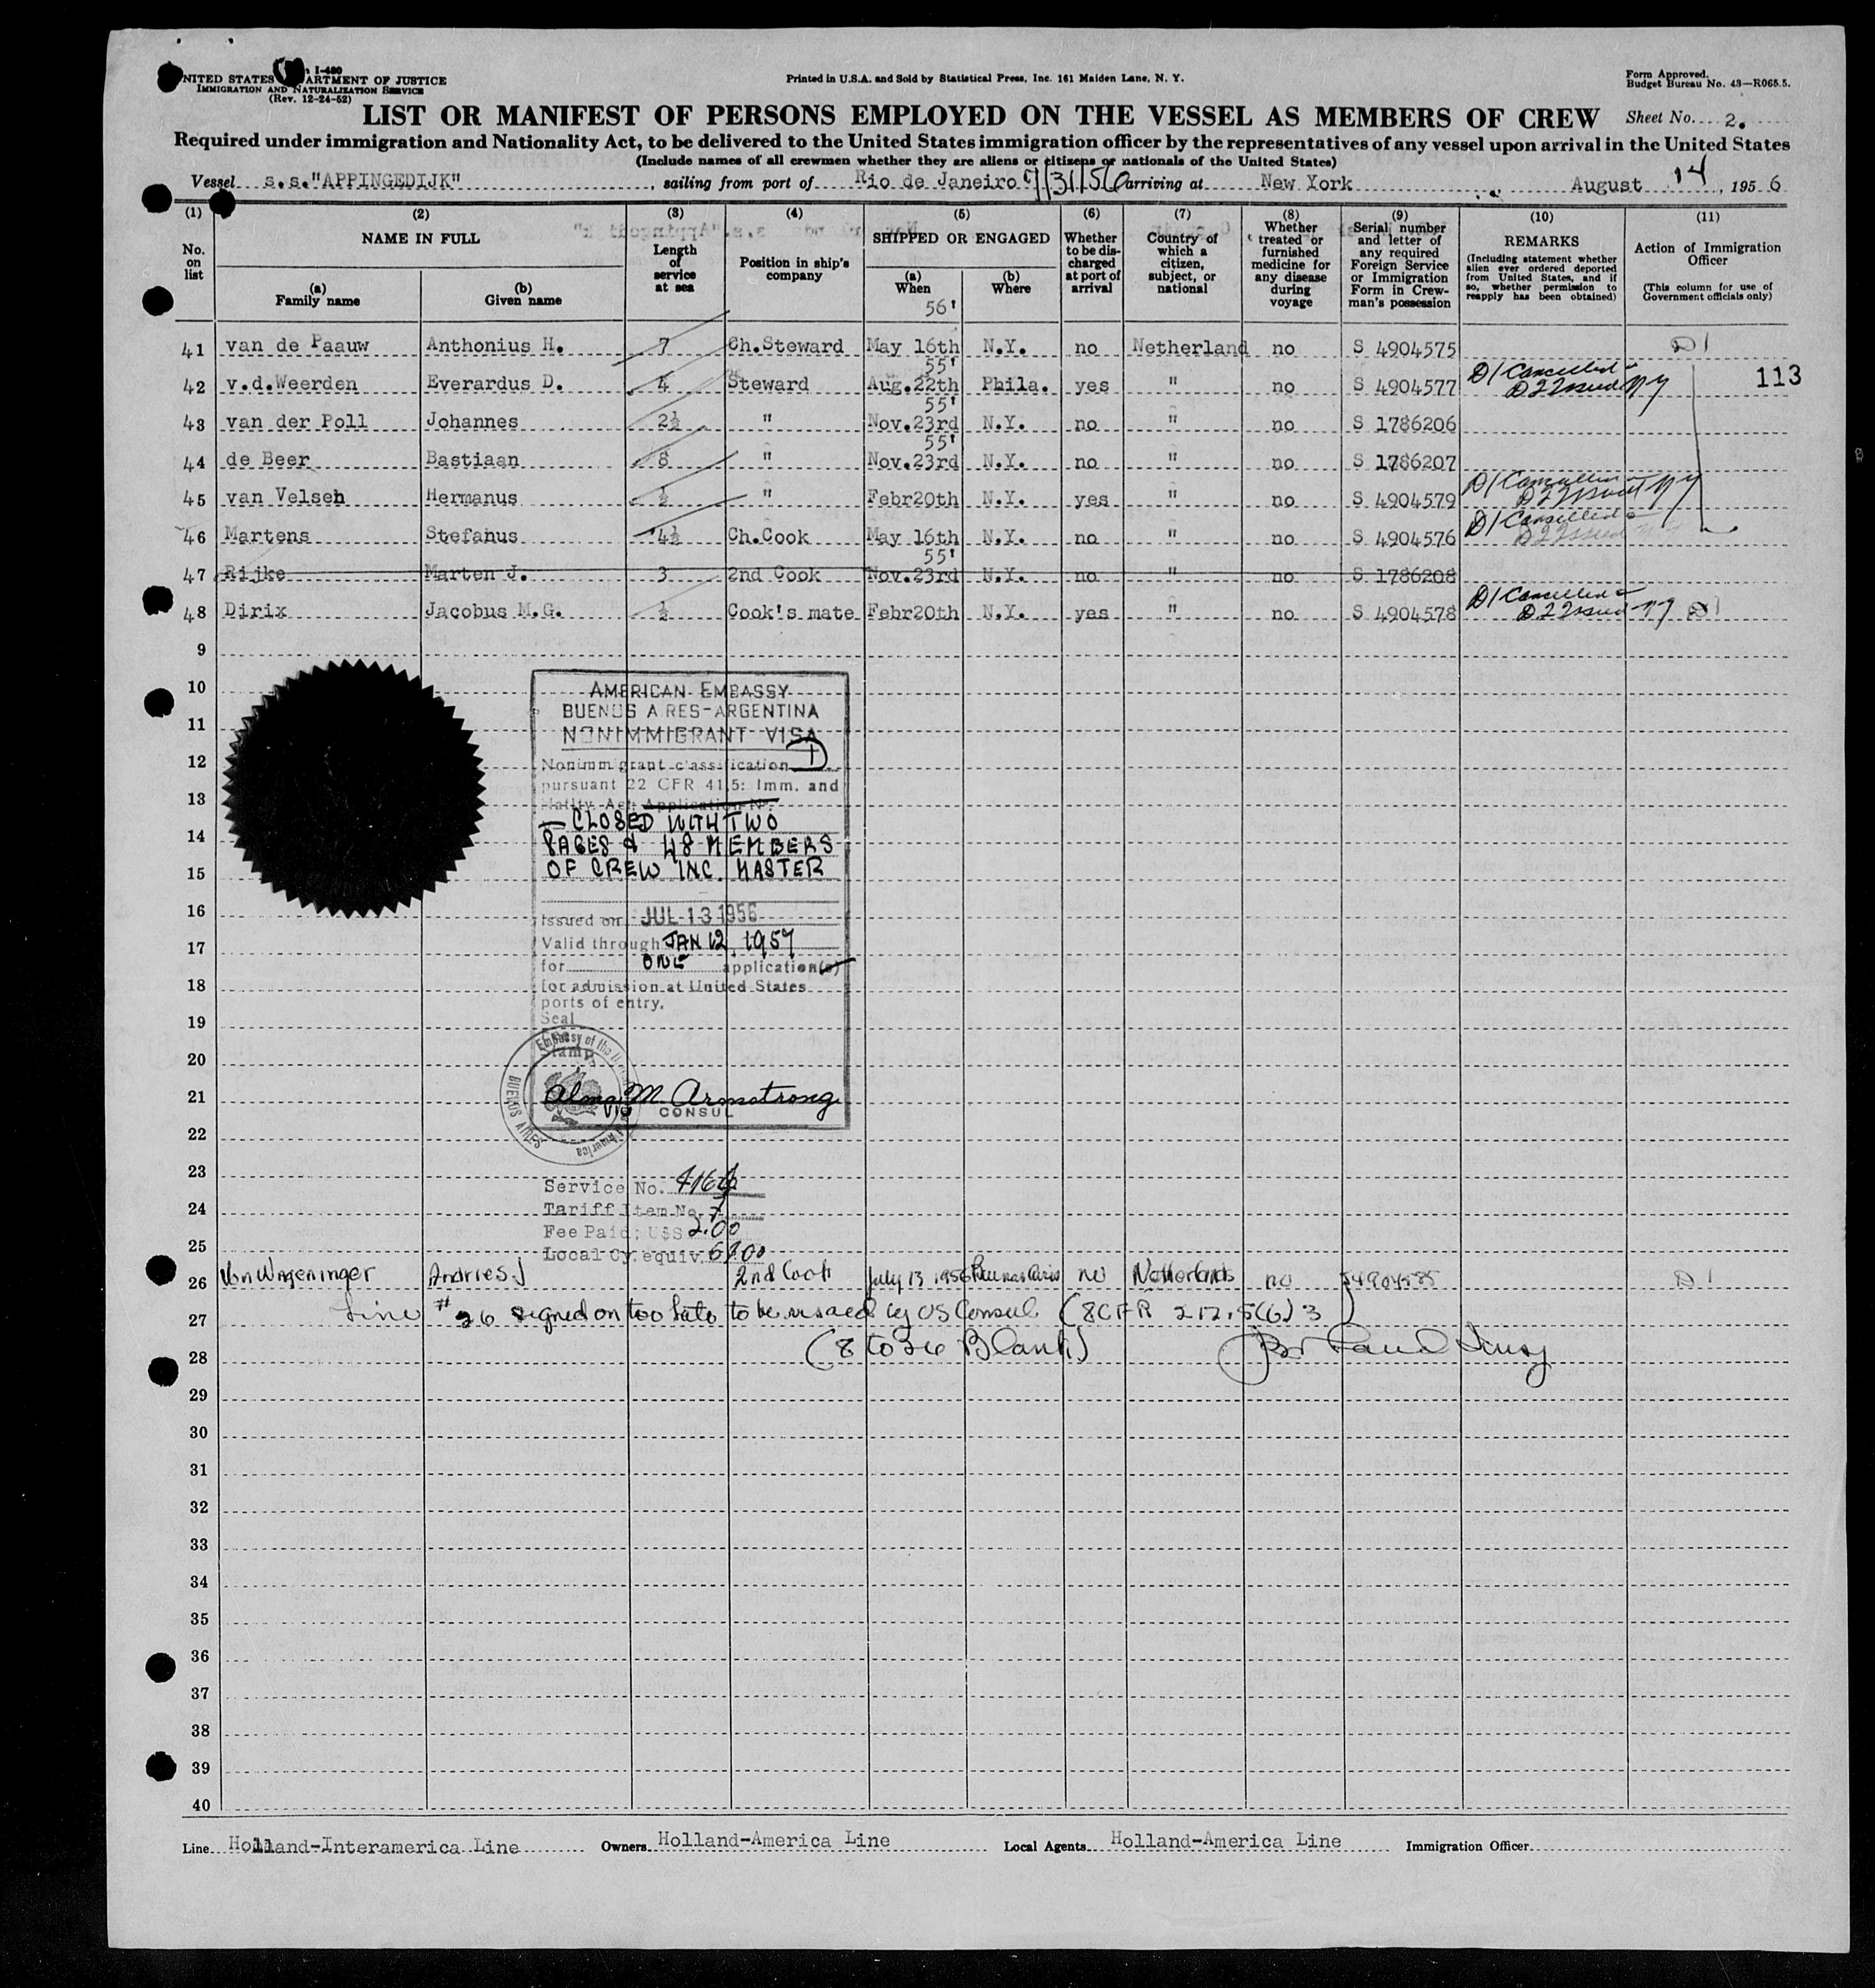 UNITED STATES DEPARTMENT OF JUSTICE
IMMIGRATION AND NATURALIZATION SERVICE
(Rev. 12-24-52)
Printed in U.S.A. and Sold by Statistical Press, Inc. 161 Maiden Lane, N. Y.
Form Approved.
Budget Bureau No. 43—R065.5.
LIST OR MANIFEST OF PERSONS EMPLOYED ON THE VESSEL AS MEMBERS OF CREW Sheet No. 2.
Required under immigration and Nationality Act, to be delivered to the United States immigration officer by the representatives of any vessel upon arrival in the United States
(Include names of all crewmen whether they are aliens or citizens or nationals of the United States)
Vessel s.s."APPINGEDIJK", sailing from port of Rio de Janeiro 7/31/56 arriving at New York August 14, 1956
(1) (2) (3) (4) (5) (6) (7) (8) (9) (10) (11)
No. on list
NAME IN FULL
(a) Family name
(b) Given name
Length of service at sea
Position in ship's company
SHIPPED OR ENGAGED
(a) When
(b) Where
Whether to be discharged at port of arrival
Country of which a citizen, subject, or national
Whether treated or furnished medicine for any disease during voyage
Serial number and letter of any required Foreign Service or Immigration Form in Crewman's possession
REMARKS
(Including statement whether alien ever ordered deported from United States, and if so, whether permission to reapply has been obtained)
Action of Immigration Officer
(This column for use of Government officials only)
56'
41 van de Paauw Anthonius H. 7 Ch.Steward May 16th N.Y. no Netherland no S 4904575 D1
55'
42 v.d.Weerden Everardus D. 4 Steward Aug.22th Phila. yes " no S 4904577 D1 Cancelled D22 issued NY 113
55'
43 van der Poll Johannes 2½ " Nov.23rd N.Y. no " no S 1786206
55'
44 de Beer Bastiaan 8 " Nov.23rd N.Y. no " no S 1786207
45 van Velseh Hermanus ½ " Febr20th N.Y. yes " no S 4904579 D1 Cancelled D22 issued NY
46 Martens Stefanus 4½ Ch.Cook May 16th N.Y. no " no S 4904576 D1 Cancelled D22 issued NY
55'
47 Rijke Marten J. 3 2nd Cook Nov.23rd N.Y. no " no S 1786208
48 Dirix Jacobus M.G. ½ Cook's mate Febr20th N.Y. yes " no S 4904578 D1 Cancelled D22 issued NY D1
9
10
11
12
13
14
15
16
17
18
19
20
21
22
23
24
25
AMERICAN EMBASSY
BUENOS AIRES-ARGENTINA
NONIMMIGRANT VISA
Nonimmigrant classification D
pursuant 22 CFR 41.5: Imm. and
Natlty. Act Application No.
— CLOSED WITH TWO
PAGES & 48 MEMBERS
OF CREW INC. MASTER
Issued on JUL 13 1956
Valid through JAN 12, 1957
for ONE application(s)
for admission at United States
ports of entry.
Seal
Stamp
Alma M. Armstrong
VICE CONSUL
BUENOS AIRES
Service No. 4164
Tariff Item No. 7
Fee Paid; U$S 2.00
Local Cy. equiv. 69.00
26 Van Wageninger Andries J 2nd Cook July 13 1956 Buenos Aires no Netherlands no S4904585 D1
27 Line #26 signed on too late to be visaed by US Consul (8CFR 212.5(6)3)
28 (8 to 26 Blank)
29
30
31
32
33
34
35
36
37
38
39
40
Line Holland-Interamerica Line Owners Holland-America Line Local Agents Holland-America Line Immigration Officer